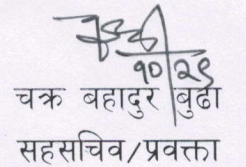 १०/२९
चक्र बहादुर बुढा
सहसचिव/प्रवक्ता